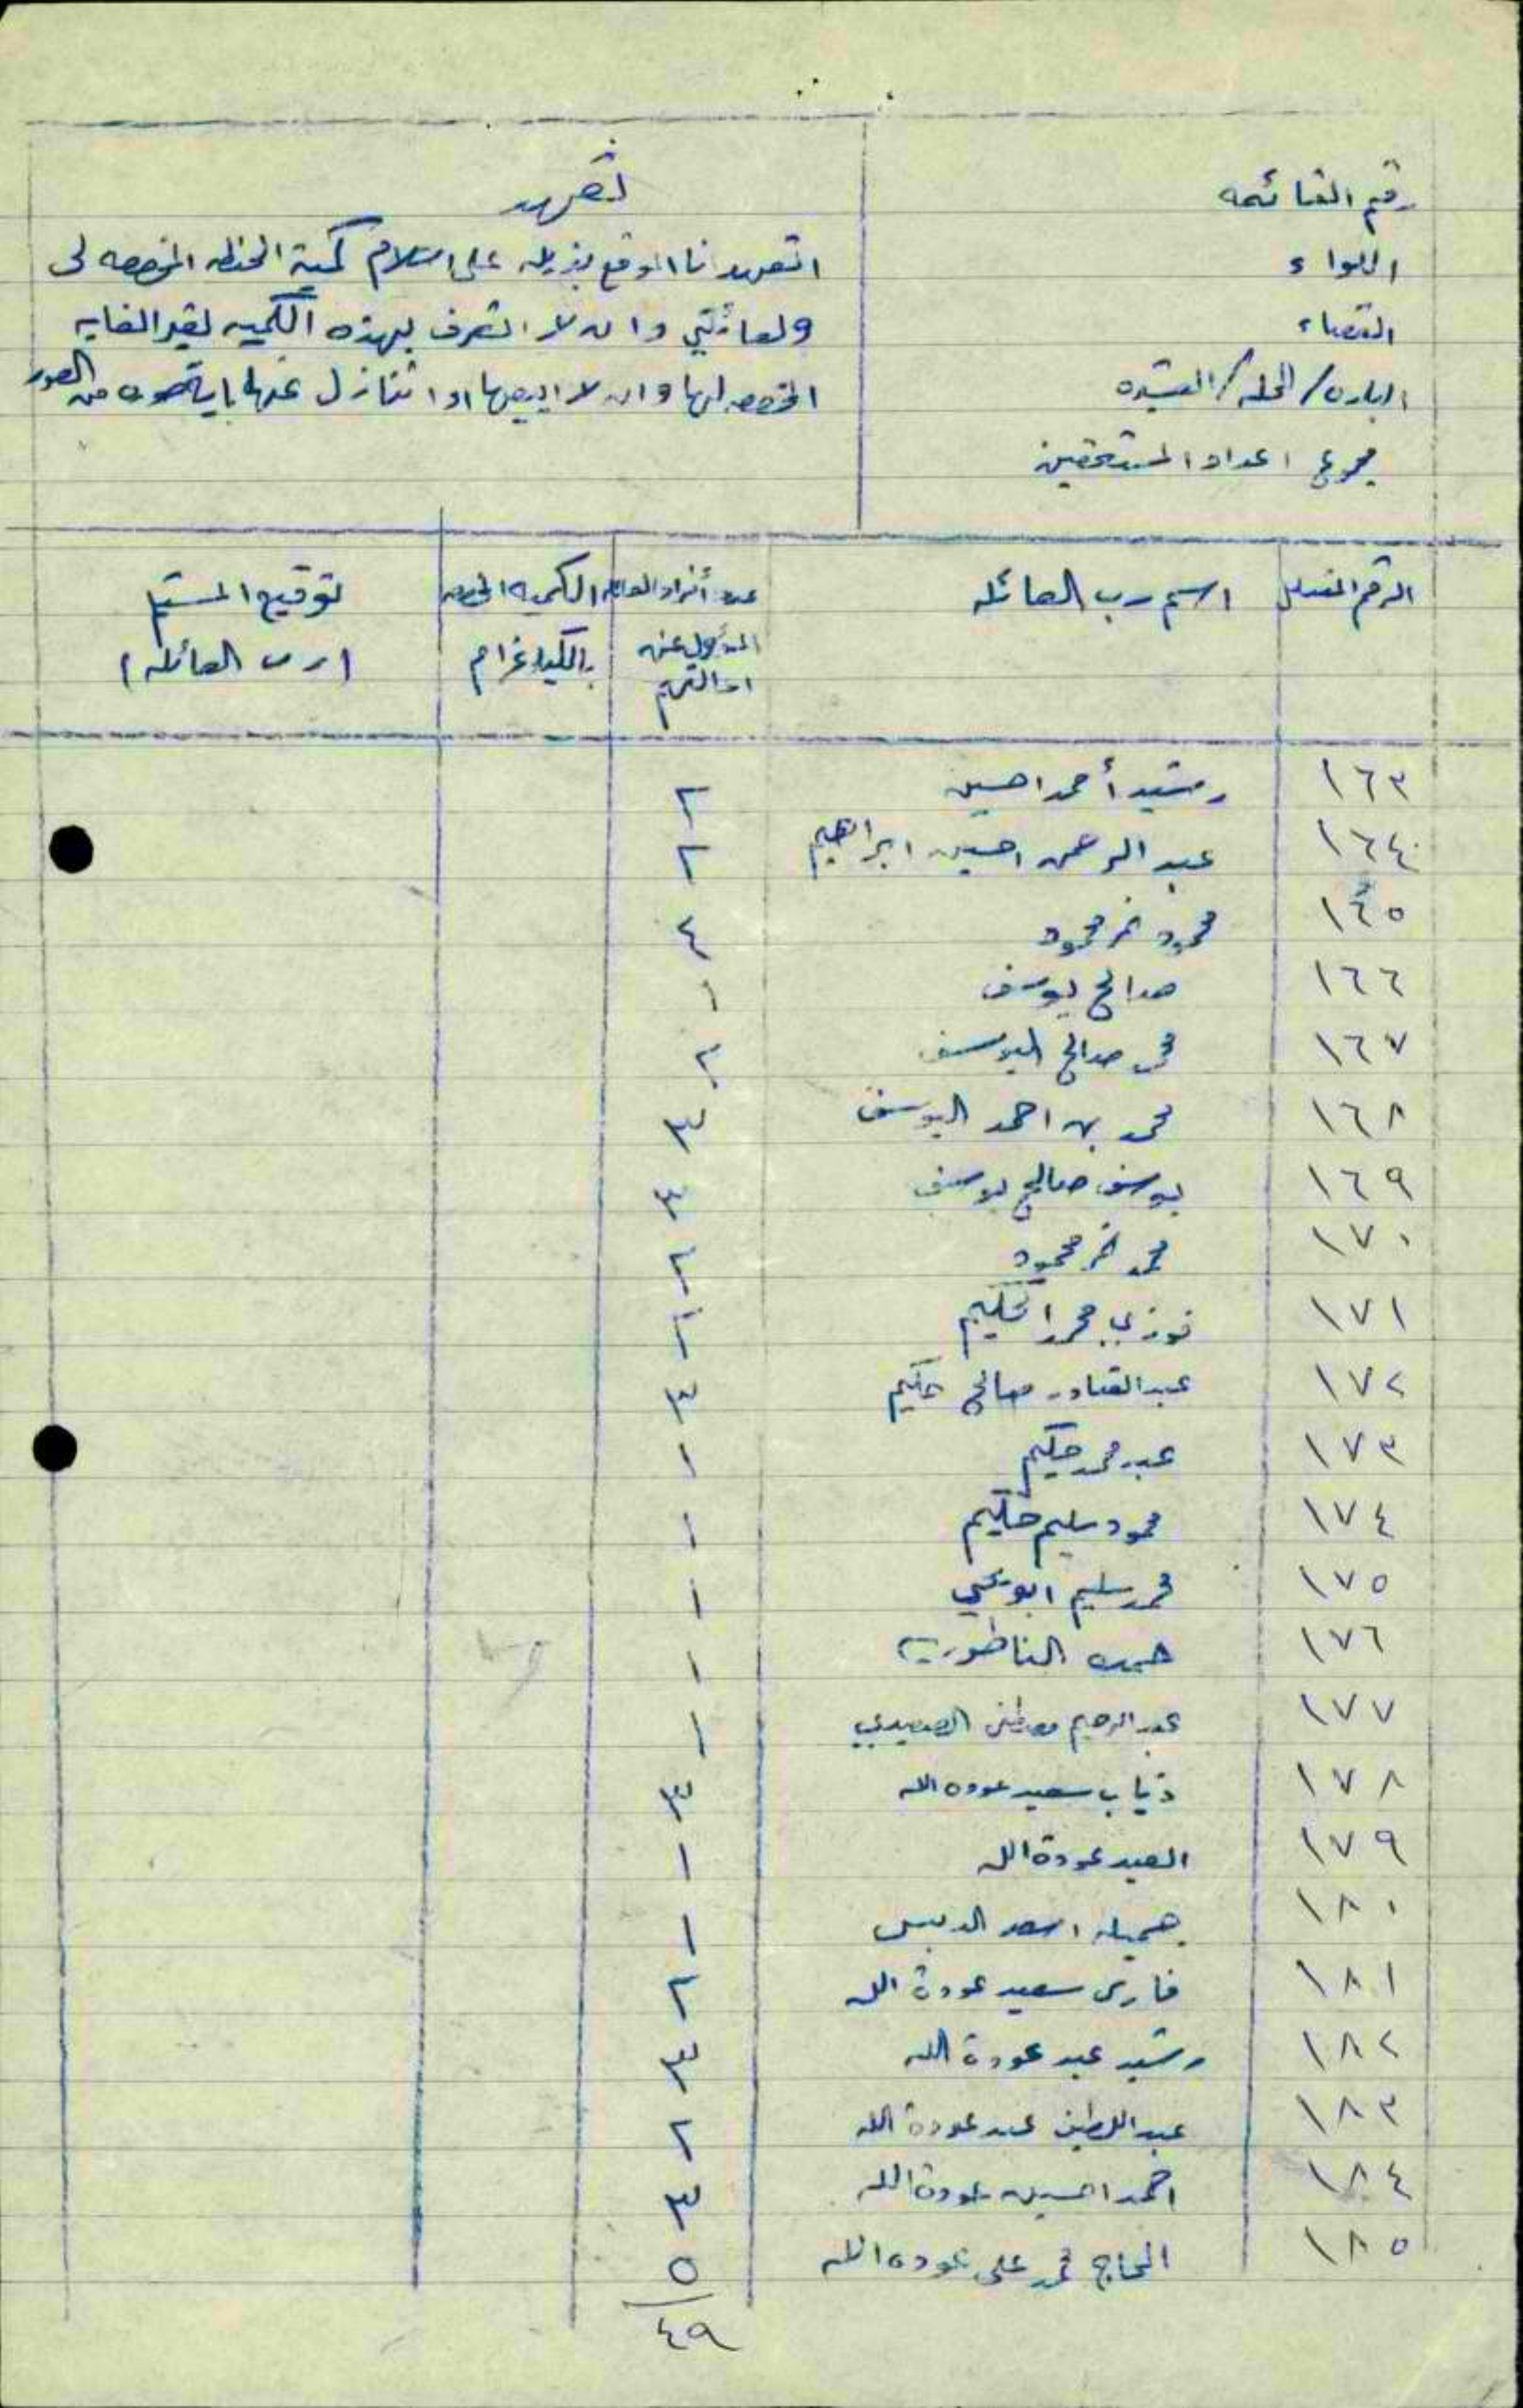 رقم القائمه
اللواء
القضاء
البلده / المحله / العشيره
مجموع اعداد المستحقين
تعهد
اتعهد انا الموقع بذيله على استلام كمية الحنطه المخصصه لى
ولعائلتي وان لا اتصرف بهذه الكميه لغير الغايه
المخصصه لها وان لا ابيعها او اتنازل عنها باية صوره من الصور
الرقم المتسلسل اسم رب العائله عدد أفراد العائله المسؤول عن اعالتهم الكميه المخصصه بالكيلوغرام توقيع المستلم (رب العائله)
١٦٣ رشيد أحمد احسين ٢
١٦٤ عبد الرحمن احسين ابراهيم ٢
١٦٥ محمود نمر محمود ٤
١٦٦ صالح يوسف ١
١٦٧ محمد صالح اليوسف ٢
١٦٨ محمد بن احمد اليوسف ٣
١٦٩ يوسف صالح يوسف ٤
١٧٠ محمد نمر محمود ٢
١٧١ فوزي محمد الحكيم ٢
١٧٢ عبد القادر صالح حكيم ٣
١٧٣ عبد محمد حكيم ١
١٧٤ محمود سليم حكيم ١
١٧٥ محمد سليم ابو يحيي ١
١٧٦ حمده الناطوريه ١
١٧٧ عبد الرحيم مصطفى الصعيدي ١
١٧٨ ذياب سعيد عوده الله ٣
١٧٩ العبد عودة الله ١
١٨٠ جميله اسعد الدبس ١
١٨١ فارس سعيد عودة الله ٢
١٨٢ رشيد عبد عودة الله ٣
١٨٣ عبد اللطيف عبد عودة الله ٢
١٨٤ احمد احسين عودة الله ٣
١٨٥ الحاج محمد علي عوده الله ٥
٤٩